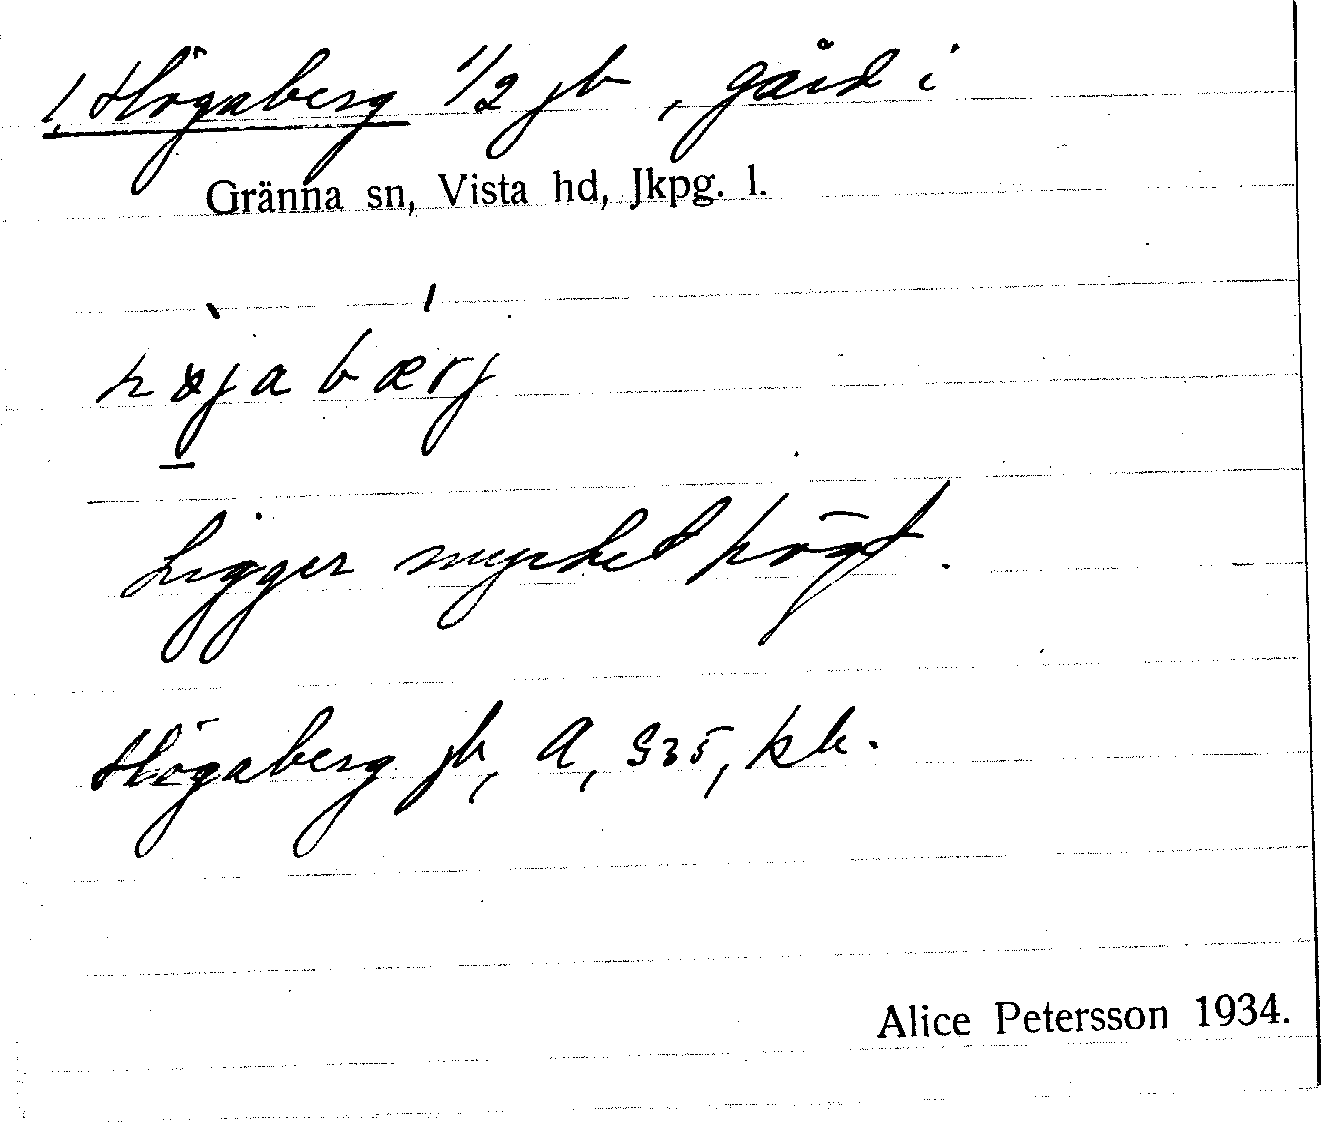 1. Högaberg 1/2 jb, gård i
Gränna sn, Vista hd, Jkpg. l.
højabærj
Ligger mycket högt.
Högaberg jb, A, 935, kb.
Alice Petersson 1934.